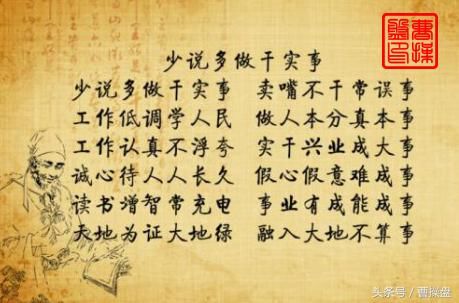 曹操盘印
少说多做干实事
少说多做干实事 卖嘴不干常误事
工作低调学人民 做人本分真本事
工作认真不浮夸 实干兴业成大事
诚心待人人长久 假心假意难成事
读书增智常充电 事业有成能成事
天地为证大地绿 融入大地不算事
头条号／曹操盘